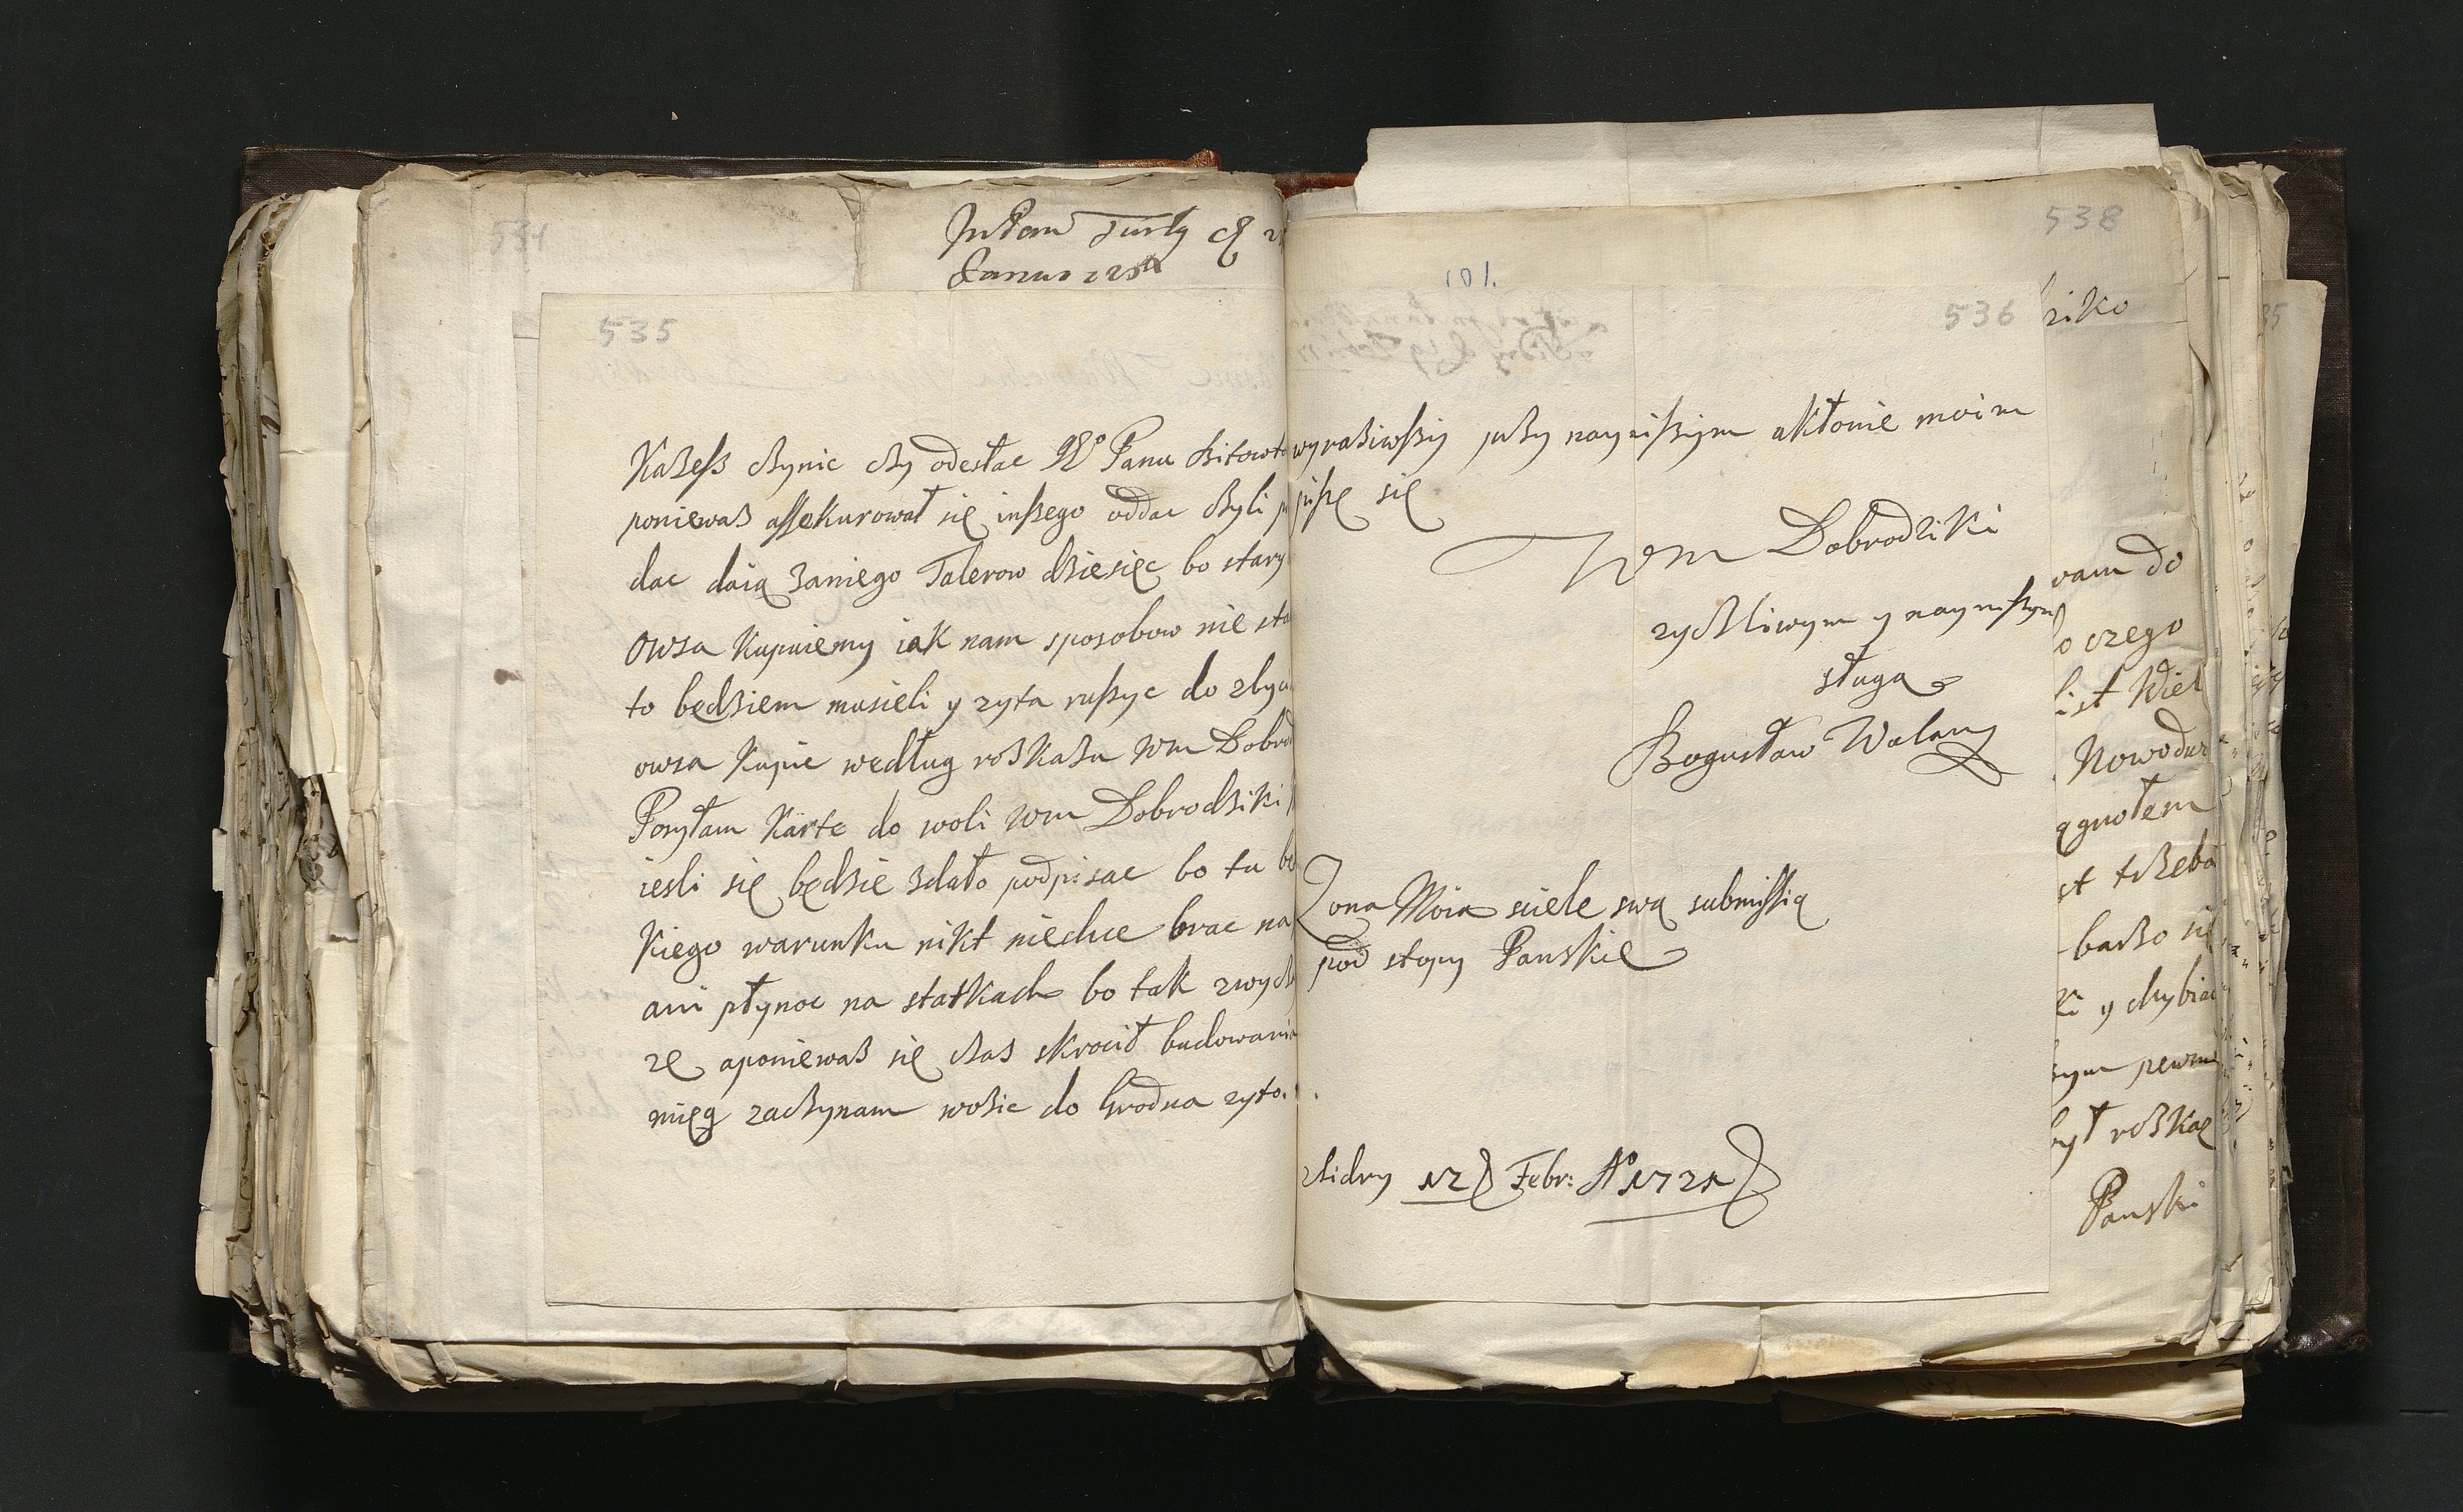 534
535
Każesz czynic czy odesłac Wo Panu
poniewasz assekurował się inszego oddac czyli
dac daią zaniego Talerow dziesięc bo stary
Owsa kupuiemy iak nam sposobow nie sta
to będziem musieli y zyta ruszyc do zbyci
owsa kupic według roskazu Wm Dobrod
Posyłam Karte do woli Wm Dobrodziki
iesli się będzie zdało podpisac bo tu be
kiego warunku nikt niechce brac na
ani płynoc na statkach bo tak zwycz
ze aponiewasz się czas skrocił budowania
mięg zaczynam wozic do Grodna zyto.
101.
536
wyraziwszy przy nayniszym ukłonie moim
piszę się
Wm Dobrodziki
zyczliwym y nayniszym
sługą
Bogusław Walany
Zona Moia ściele swą submissią
pod stopy Panskie
zSidry 12 Febr: Ao 1721
538
ziko
wam do
czego
list Wiel
Nowodwr
ągnołem
st trzeba
barzo
y chybia
pewn
był roskaz
Panski